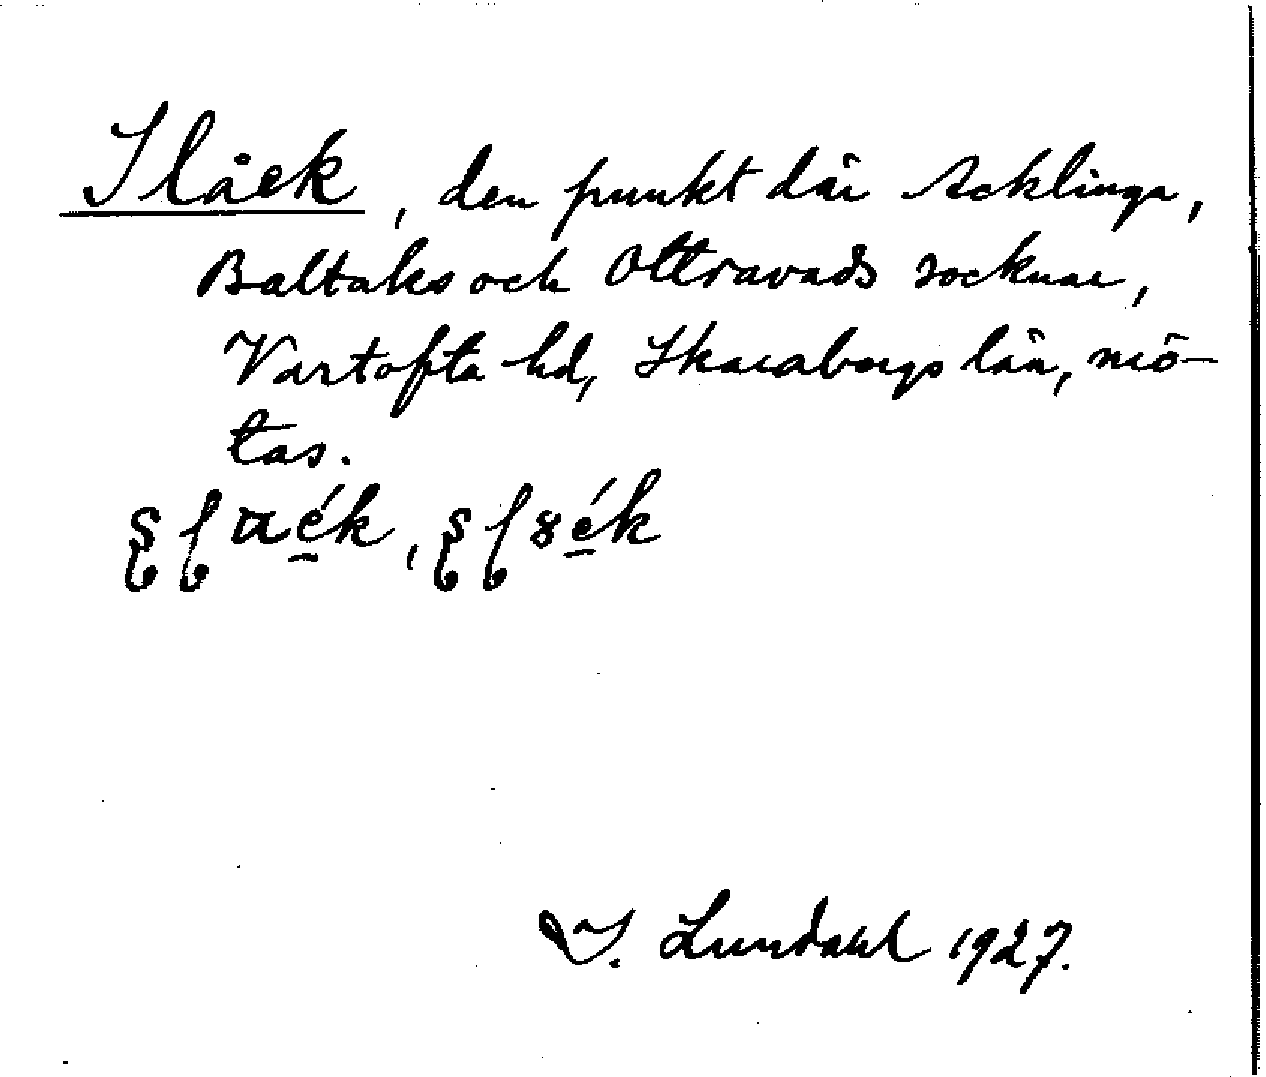 Slåek, den punkt där Acklinga,
Baltaks och Ottravads socknar,
Vartofta hd, Skaraborgs län, mö-
tas.
I. Lundahl 1927.